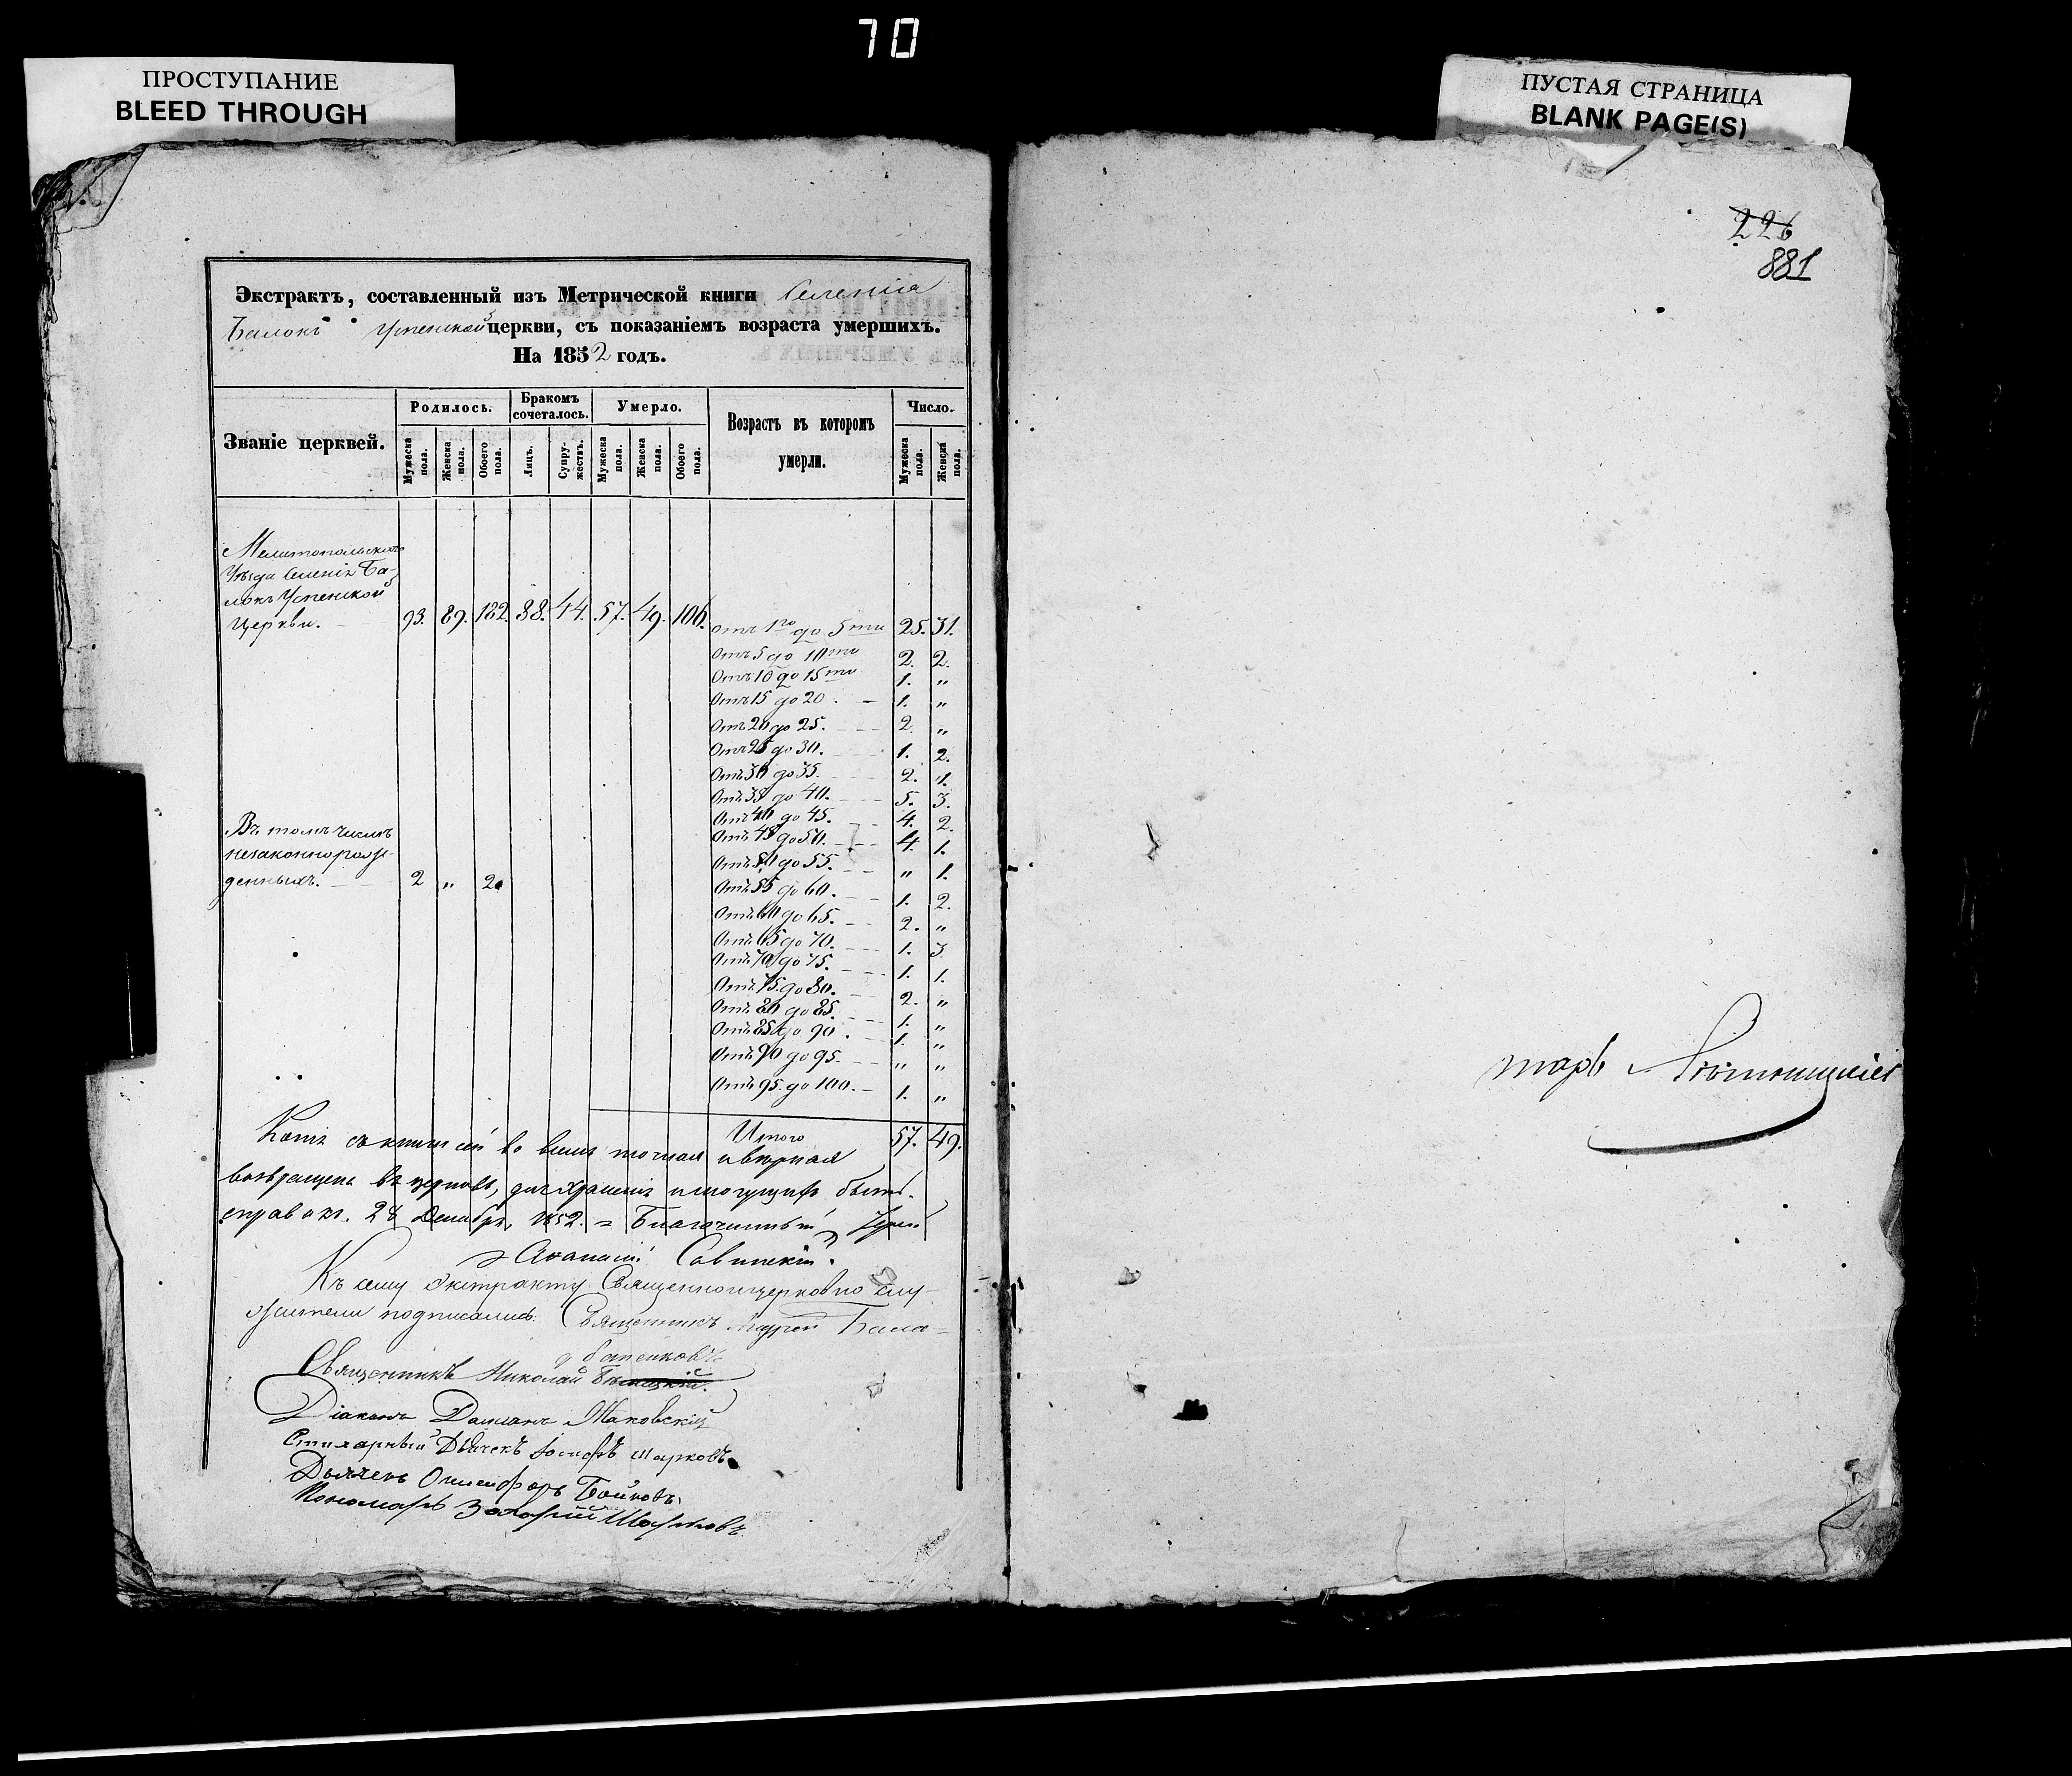 70
ПРОСТУПАНИЕ
BLEED THROUGH
ПУСТАЯ СТРАНИЦА
BLANK PAGE(S)
226
881
Экстрактъ, составленный изъ Метрической книги Селенія
Балокъ Успенской церкви, съ показаніемъ возраста умершихъ.
На 1852 годъ.
Званіе церквей.
Родилось.
Бракомъ сочеталось.
Умерло.
Возрастъ въ которомъ умерли.
Число.
Мужеска пола.
Женска пола.
Обоего пола.
Лицъ.
Супружествъ.
Мужеска пола.
Женска пола.
Обоего пола.
Мужеска пола.
Женска пола.
Мелитопольскаго
Уѣзда Селенія Ба-
локъ Успенской
Церкви. 93. 89. 182. 88. 44. 57. 49. 106.
Отъ 1го до 5ти 25. 31.
Отъ 5 до 10ти 2. 2.
Отъ 10 до 15ти 1. "
Отъ 15 до 20. 1. "
Отъ 20 до 25. 2. "
Отъ 25 до 30. 1. 2.
Отъ 30 до 35. 2. 1.
Отъ 35 до 40. 5. 3.
Отъ 40 до 45. 4. 2.
Отъ 45 до 50. 4. 1.
Отъ 50 до 55. " 1.
Отъ 55 до 60. 1. 2.
Отъ 60 до 65. 2. "
Отъ 65 до 70. 1. 3.
Отъ 70 до 75. 1. 1.
Отъ 75 до 80. 2. "
Отъ 80 до 85. 1. "
Отъ 85 до 90. 1. "
Отъ 90 до 95. " "
Отъ 95. до 100. 1. "
Въ томъ числѣ
незаконнорож-
денныхъ. 2 " 2.
Итого 57. 49.
Копія съ книги сей во всемъ точная и вѣрная
возвращена въ церковь, для храненія и могущихъ быть
справокъ. 28 Декабря 1852. = Благочинный Іерей
Аѳанасій Савинскій.
Къ сему Экстракту Священноицерковнослу-
жители подписались: Священникъ Андрей Бала-
батенковъ
Священникъ Николай
Діаконъ Даміанъ Маковскій
Стихарный Дьячекъ Іосифъ Шарковъ
Дьячекъ Онисифоръ Бойковъ.
Пономарь Захарій Шарковъ.